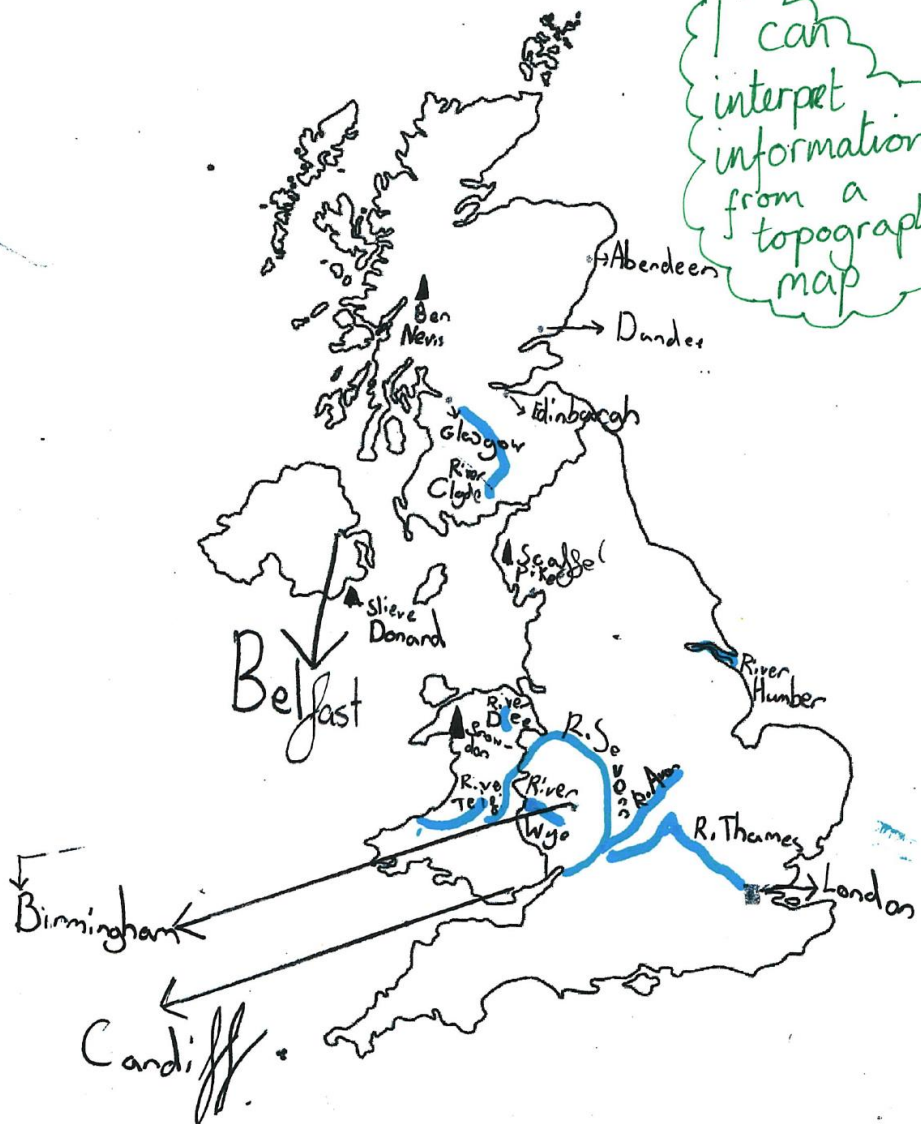 I can
interpret
information
from a
topograph
map
Aberdeen
Ben
Nevis
Dundee
Edinbourgh
Glasgow
River
Clyde
Scaffel
Pike
Slieve
Donard
Belfast
River
Humber
River
Dee
Snow-
don
R. Severn
R. Avon
River
Teifi
River
Wye
R. Thames
London
Birmingham
Candiff.